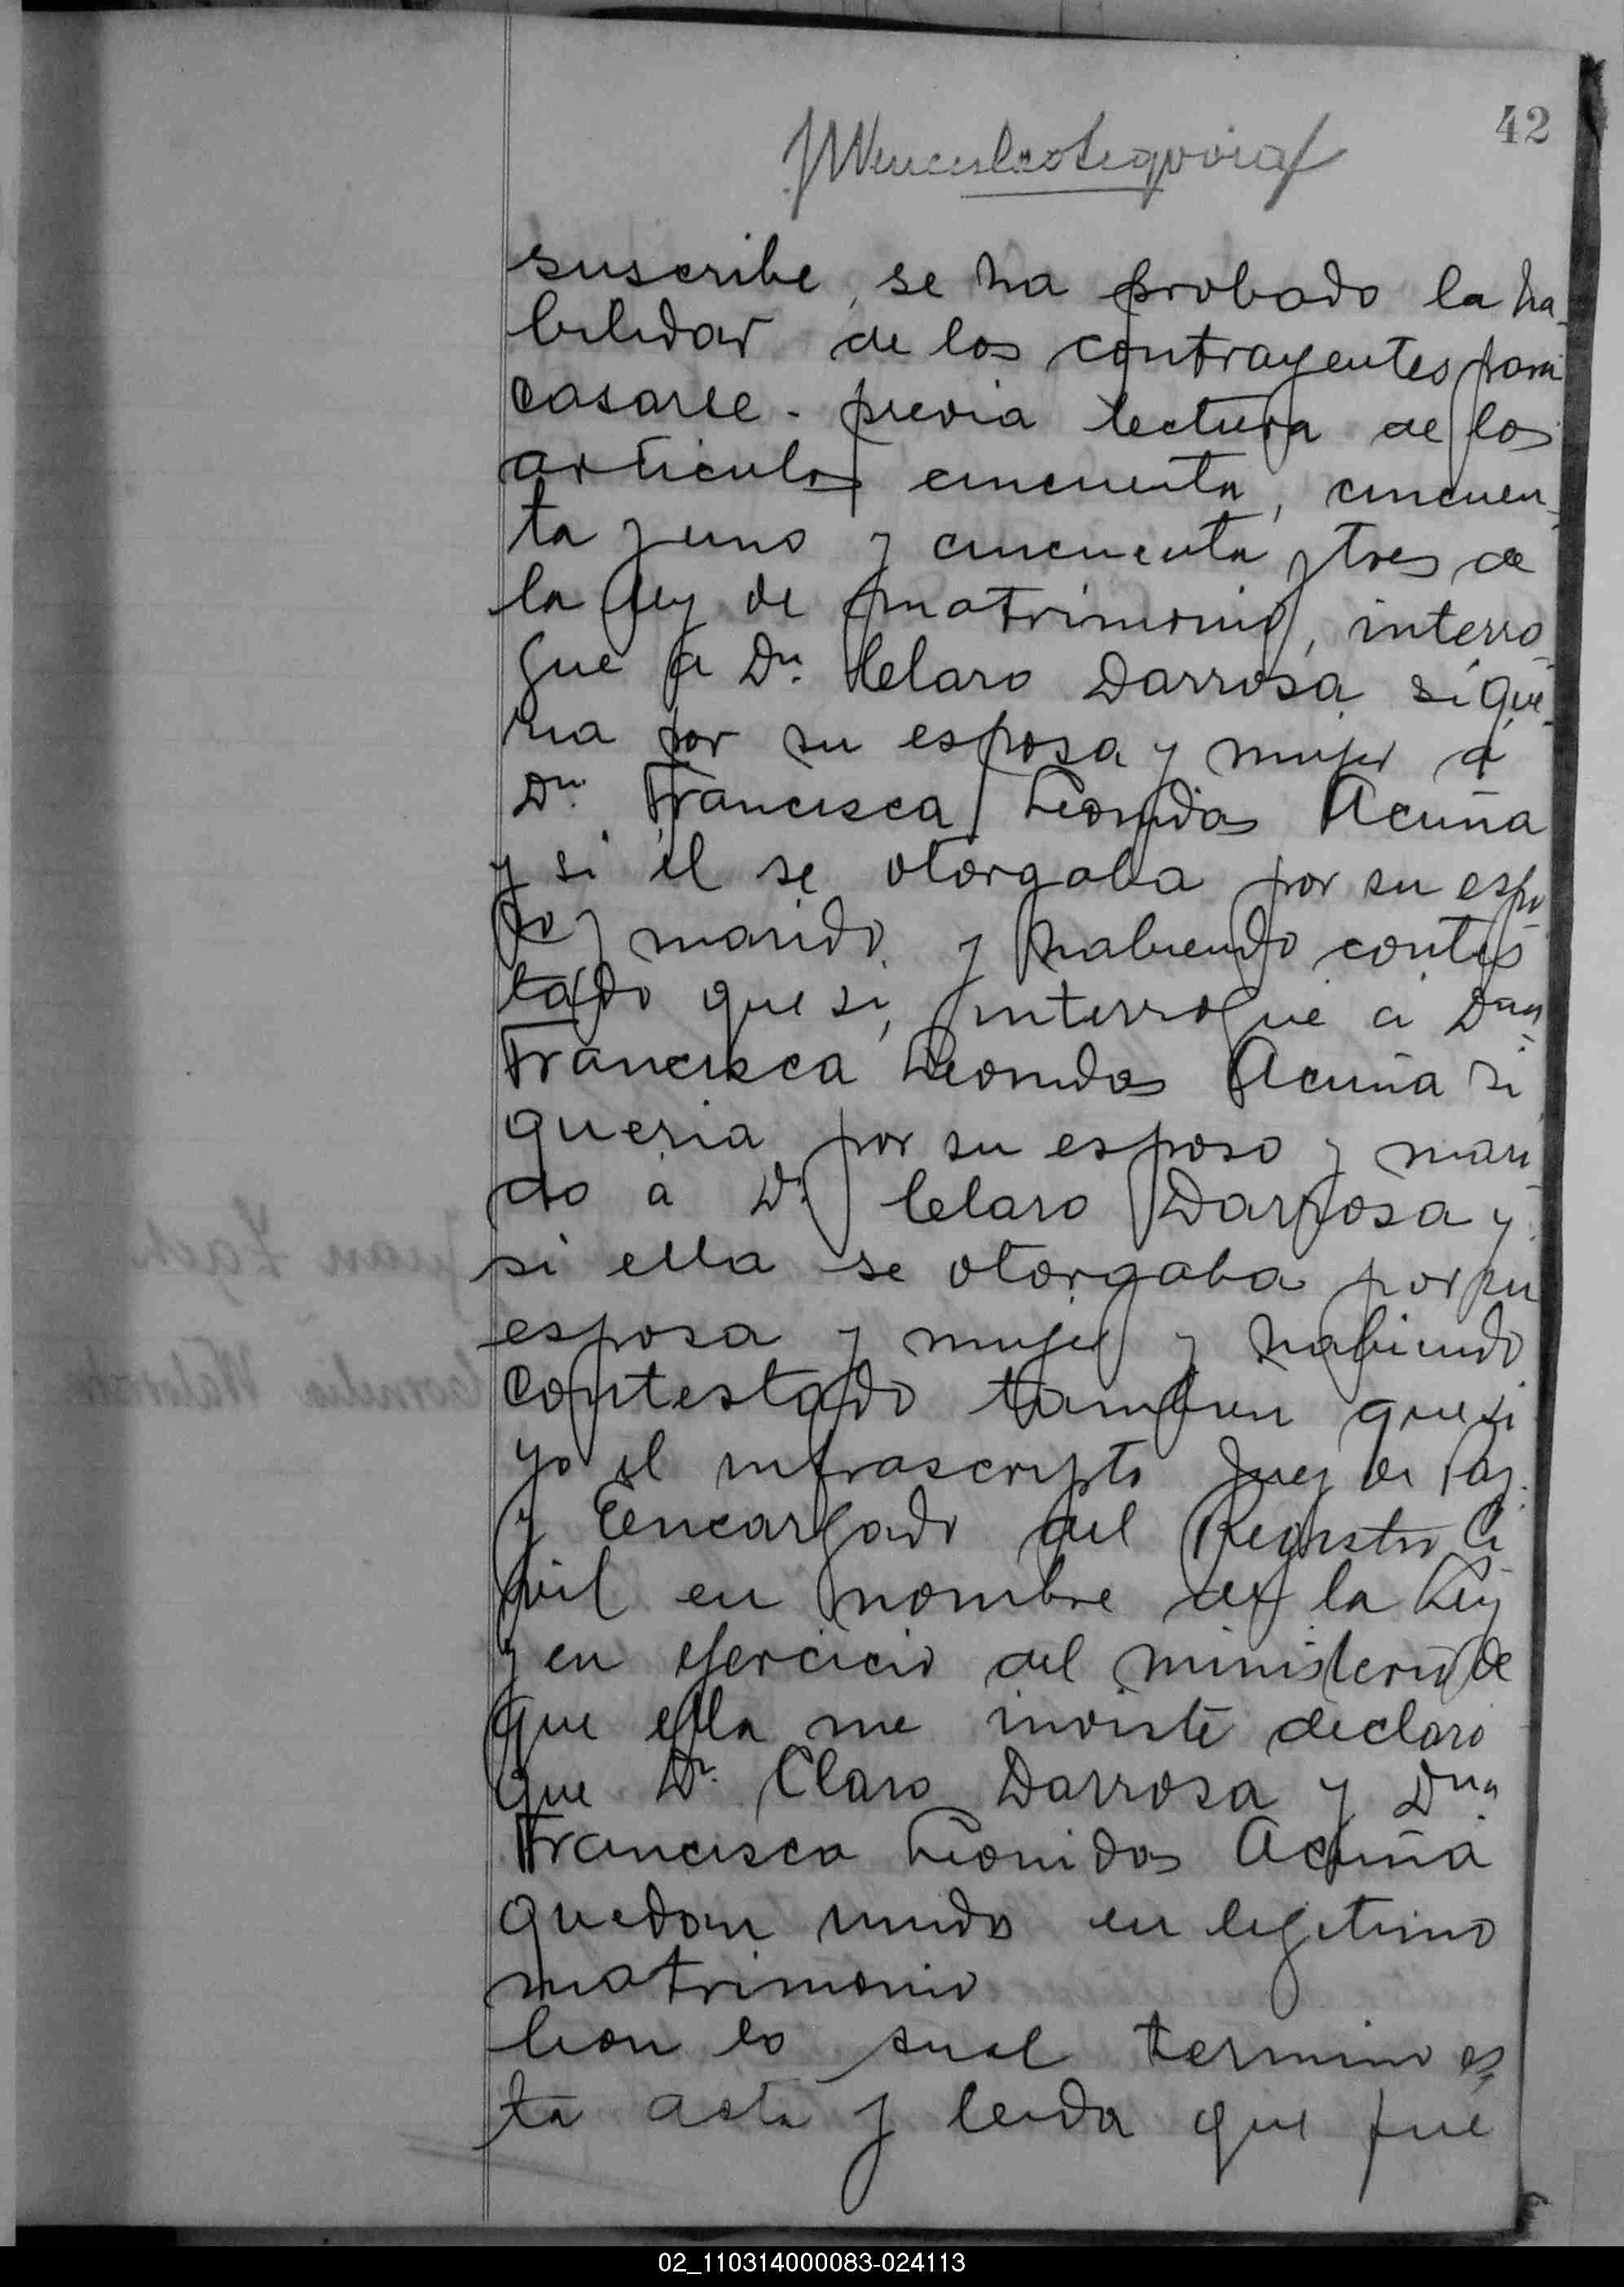 42
suscribe, se ha probado la ha-
bilidad de los contrayentes para
casarse - previa lectura de los
articulos cincuenta, cincuen-
ta y uno y cincuenta y tres de
la ley de matrimonio, interro-
gué a Dn. Claro Darrosa si que-
ria por su esposa y mujer á
Dn. Francisca Leonidas Acuña
y si él se otorgaba por su espo
so y marido, y habiendo contes-
tado que si, interrogué á Dna
Francisca Leonidas Acuña si
queria por su esposo y mari-
do á Dn. Claro Darrosa y
si ella se otorgaba por su
esposa y mujer y habiendo
contestado tambien que si
yo el infrascripto Juez de Paz
y Encargado del Registro Ci
vil en nombre de la Ley
y en ejercicio del ministerio de
que ella me inviste declaro
que Dn. Claro Darrosa y Dna
Francisca Leonidas Acuña
quedan unidos en legitimo
matrimonio
Con lo cual termino es
ta acta y leida que fue
02_110314000083-024113